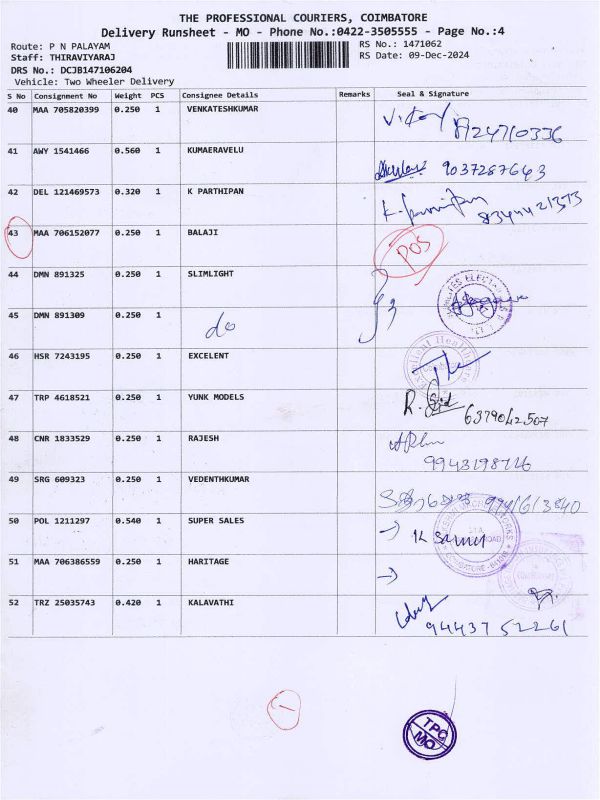 THE PROFESSIONAL COURIERS, COIMBATORE
Delivery Runsheet - MO - Phone No.:0422-3505555 - Page No.:4
Route: P N PALAYAM RS No.: 1471062
Staff: THIRAVIYARAJ RS Date: 09-Dec-2024
DRS No.: DCJB147106204
Vehicle: Two Wheeler Delivery
S No Consignment No Weight PCS Consignee Details Remarks Seal & Signature
40 MAA 705820399 0.250 1 VENKATESHKUMAR 8124710336
41 AWY 1541466 0.560 1 KUMAERAVELU 9037287643
42 DEL 121469573 0.320 1 K PARTHIPAN
43 MAA 706152077 0.250 1 BALAJI POS
44 DMN 891325 0.250 1 SLIMLIGHT
45 DMN 891309 0.250 1 do
46 HSR 7243195 0.250 1 EXCELENT
47 TRP 4618521 0.250 1 YUNK MODELS 6379042507
48 CNR 1833529 0.250 1 RAJESH
49 SRG 609323 0.250 1 VEDENTHKUMAR
50 POL 1211297 0.540 1 SUPER SALES
51 MAA 706386559 0.250 1 HARITAGE
52 TRZ 25035743 0.420 1 KALAVATHI 9443752261
1
TPC
MO